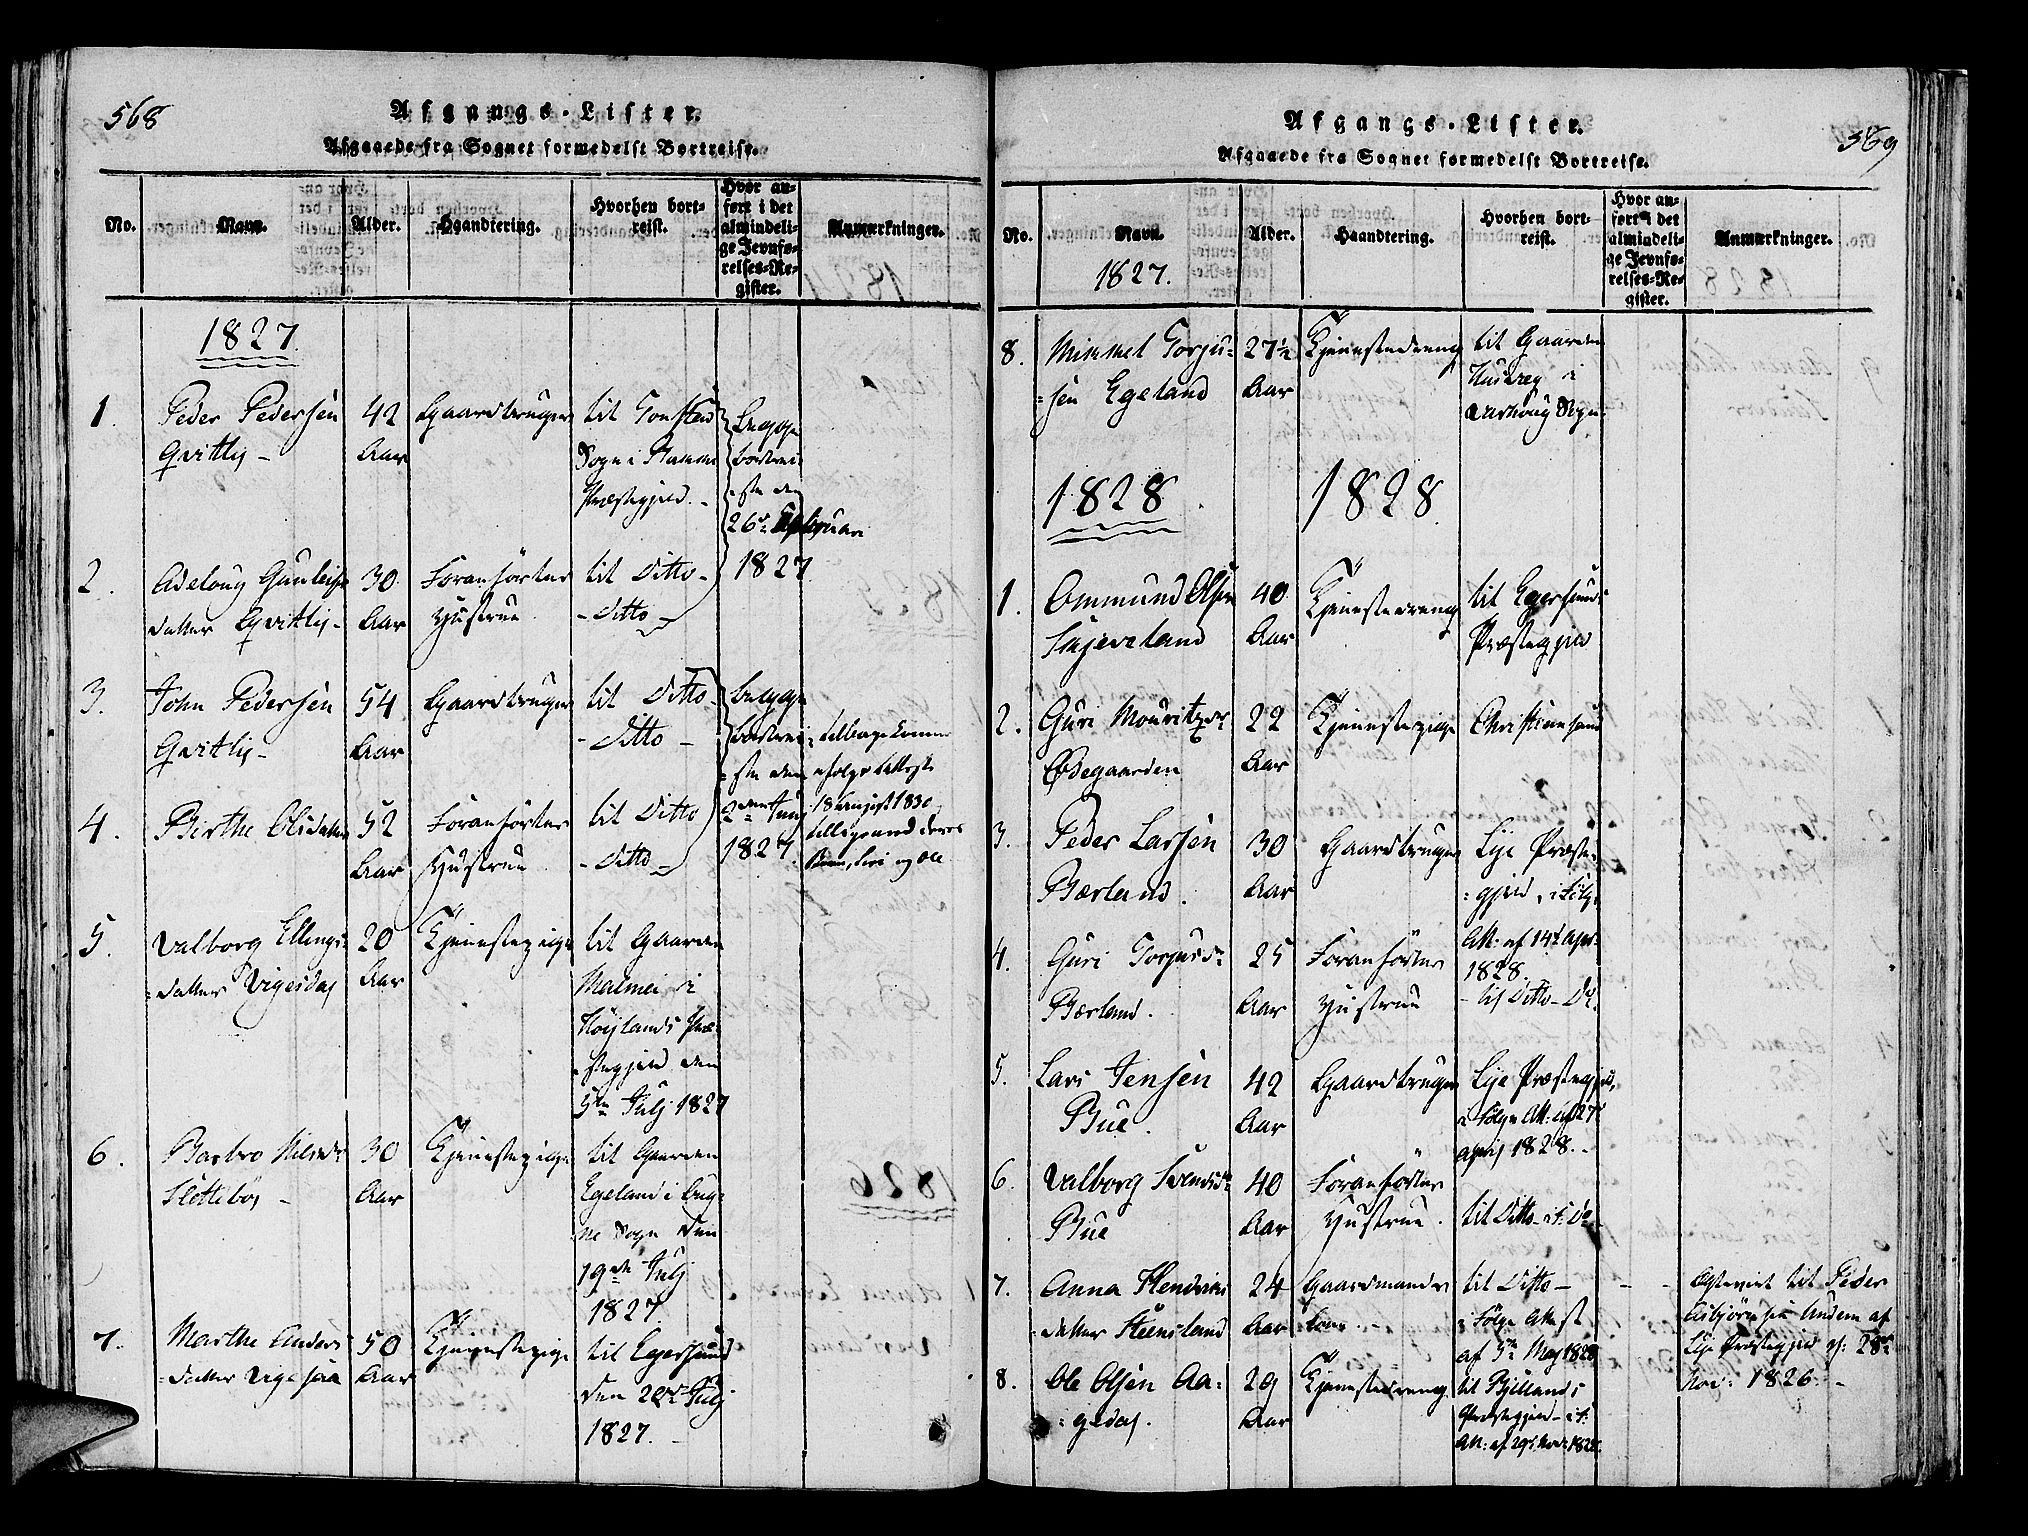 568
Afgangs-Lister.
Afgaaede fra Sognet formedelst Bortreise.
No.
Navn.
Alder.
Haandtering.
Hvorhen bort-
reist.
Hvor an-
ført i det
almindeli-
ge Jevnfø-
relses-Re-
gister.
Anmærkninger.
1827
1.
Peder Pedersen
Qvitlij -
42
Aar
Gaardbruger
til Tonstad
Sogn i
Præstegjeld. -
begge
bortrei-
-ste den
26de Februar
1827
2.
Adeloug Gunleifs
datter Qvitlij -
30
Aar
Foranførtes
Hustrue
til Ditto -
- Ditto -
3.
John Pedersen
Qvitlij -
54
Aar
Gaardbruger
til Ditto
- Ditto -
begge
bortrei-
-ste den
2den Junj
1827
tilbagekomne
ifølge
18 august 1830
tilligemed deres
Børn, Siri og Ole
4.
Birthe Olsdatter
52
Aar
Foranførtes
Hustrue
til Ditto
- Ditto -
5.
Valborg Ellings-
-datter Vigesdal
20
Aar
Tjenestepige
til Gaarden
Malmei i
Høilands Præ-
-stegjeld den
5te Julj 1827
6.
Barbro Nilsdr
Slettebøe -
30
Aar
Tjenestepige
til Gaarden
Egeland i
ne Sogn den
19de Julj
1827.
7.
Marthe Anders-
-datter Vigesaa
50
Aar
Tjenestepige
til Egersund
den 22de Julj
1827. -
Afgangs-Lister.
569
Afgaaede fra Sognet formedelst Bortreise.
No.
Navn.
1827.
Alder.
Haandtering.
Hvorhen bort-
reist.
Hvor an-
ført i det
almindeli-
ge Jevnfø-
relses-Re-
gister.
Anmærkninger.
8.
Mikkel Torju-
-sen Egeland
27½
Aar
Tjenestedreng
til Gaarden
Husveg i
Varhoug Sogn
1828
1828
1.
Ommund Olsen
Skjeveland
40
Aar
Tjenestedreng
til Egersunds
Præstegjeld
2.
Guri Mouritzdr
Ødegaarden
22
Aar
Tjenestepige
Christiansand
3.
Peder Larsen
Bærland.
30
Aar
Gaardbruger
Lye Præste-
-gjeld, i Følg.
Att: af 14de Apr.
1828.
4.
Guri Torjusdr
Bærland.
25
Aar
Foranførtes
Hustrue
- til Ditto - Do.
5.
Lars Jensen
Bue.
42
Aar
Gaardbruger
Lye Præstegjeld,
i Følge Att: af 27de
april 1828. -
6.
Valborg Svendsdr
Bue
40
Aar
Foranførtes
Hustrue.
til Ditto - i F: Do
7.
Anna Hendrics
datter Steensland
24
Aar
Gaardmands
Kone. -
til Ditto -
i Følge Attest
af 5te Maj 1828
Asbjørnsen af
Lye Præstegjeld d: 28de
Nov: 1826. -
8.
Ole Olsen Aa-
-gedal.
29
Aar
Tjenestedreng
til Bjellands
Præstegjeld - i F:
Att: af 29de Nov: 1828.